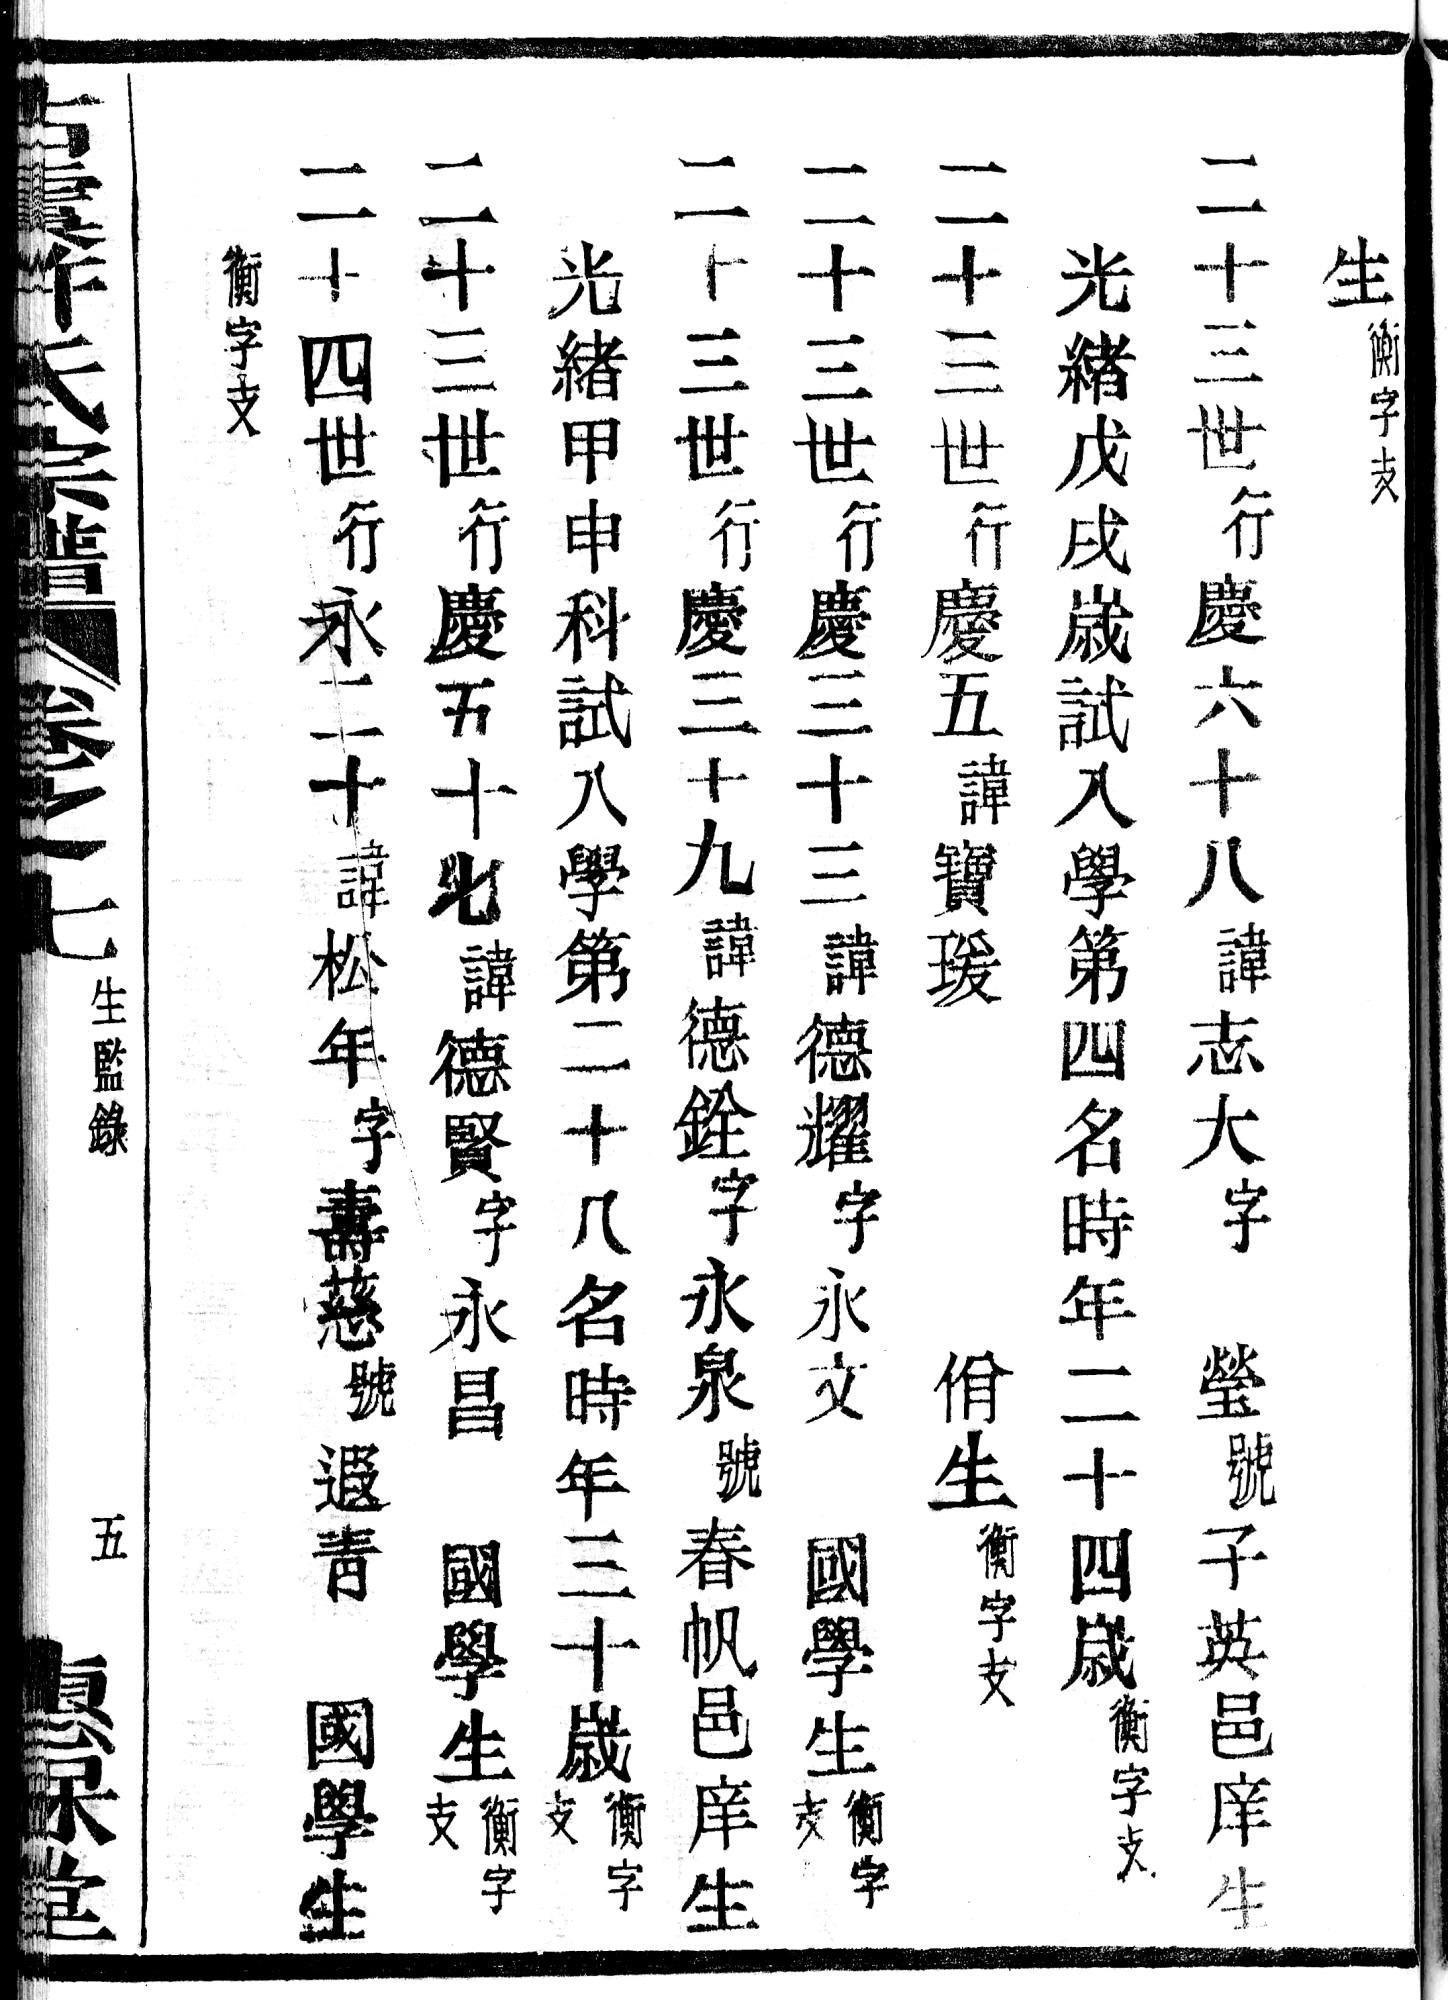 生衡字支
二十三世行慶六十八諱志大字 瑩號子英邑庠生
光緒戊戌歲試入學第四名時年二十四歲衡字支
二十三世行慶五諱寶瑗 佾生衡字支
二十三世行慶三十三諱德耀字永文 國學生衡字支
二十三世行慶三十九諱德銓字永泉號春帆邑庠生
光緒甲申科試入學第二十八名時年三十歲衡字支
二十三世行慶五十七諱德賢字永昌 國學生衡字支
二十四世行永二十諱松年字壽慈號遐青 國學生
衡字支
氏宗譜 卷之七 生監錄 五 堂